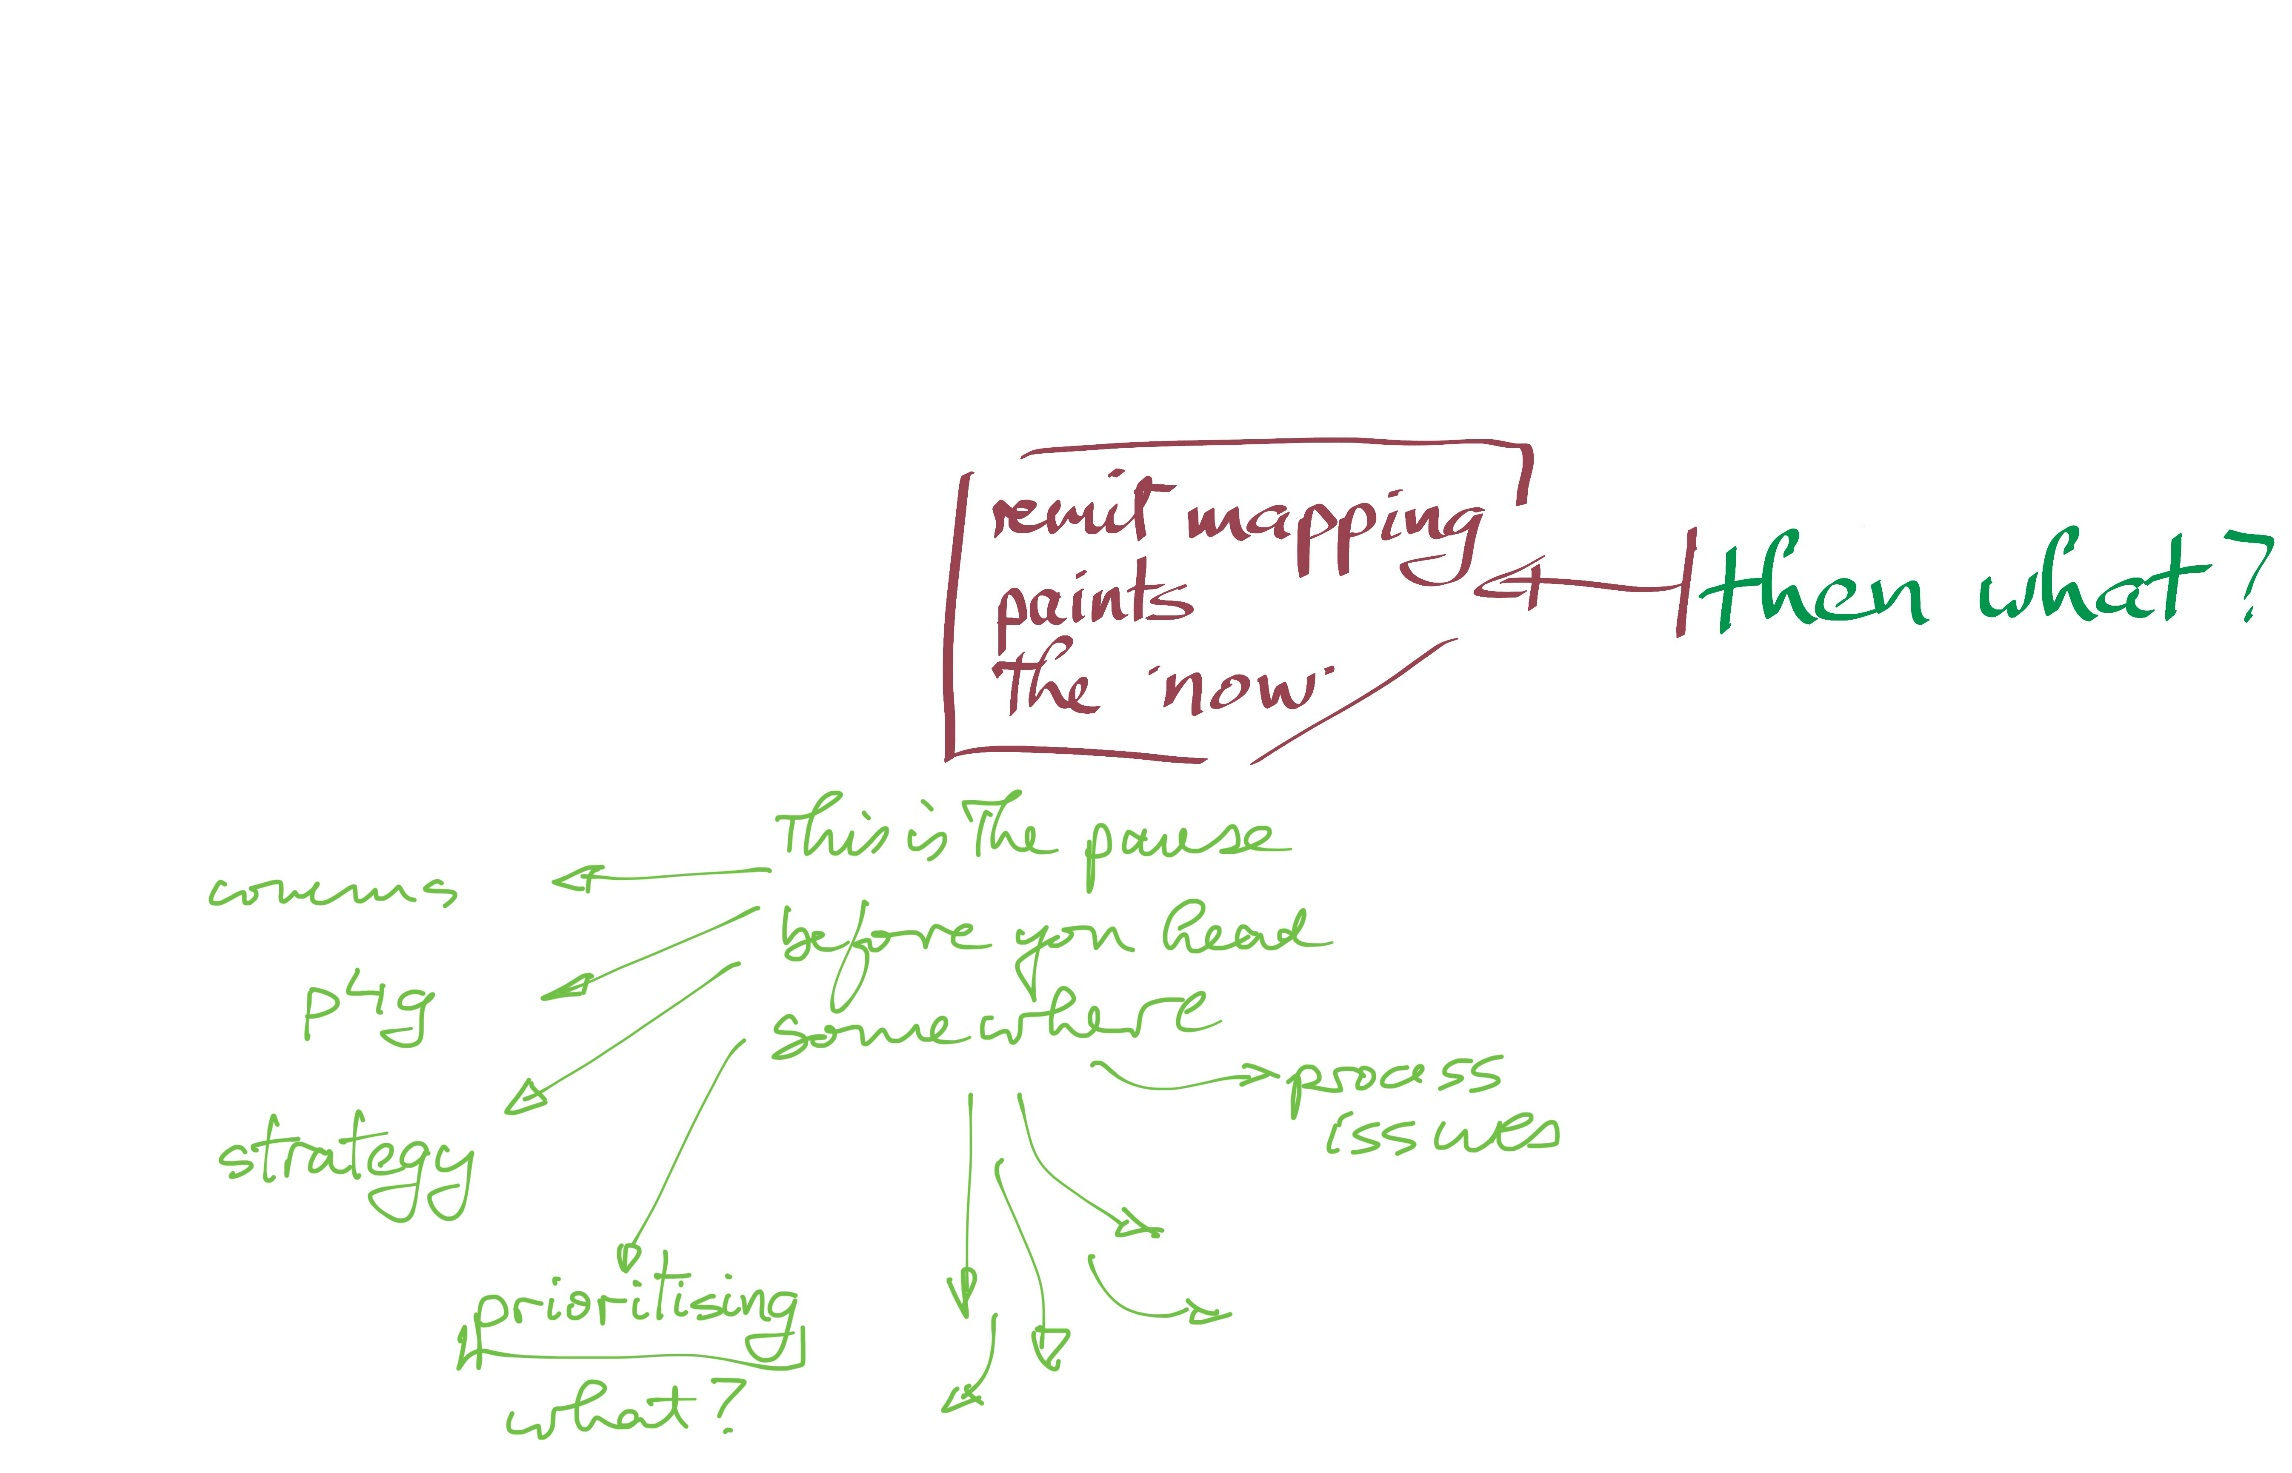 remit mapping
paints
the 'now'
then what?
This is the pause
before you head
somewhere
comms
p4g
strategy
prioritising
what?
process
issues